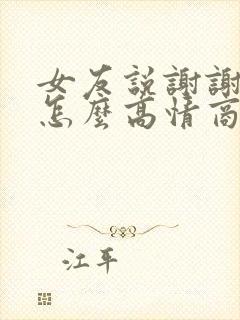 女友說謝謝
怎麼高情商
江平